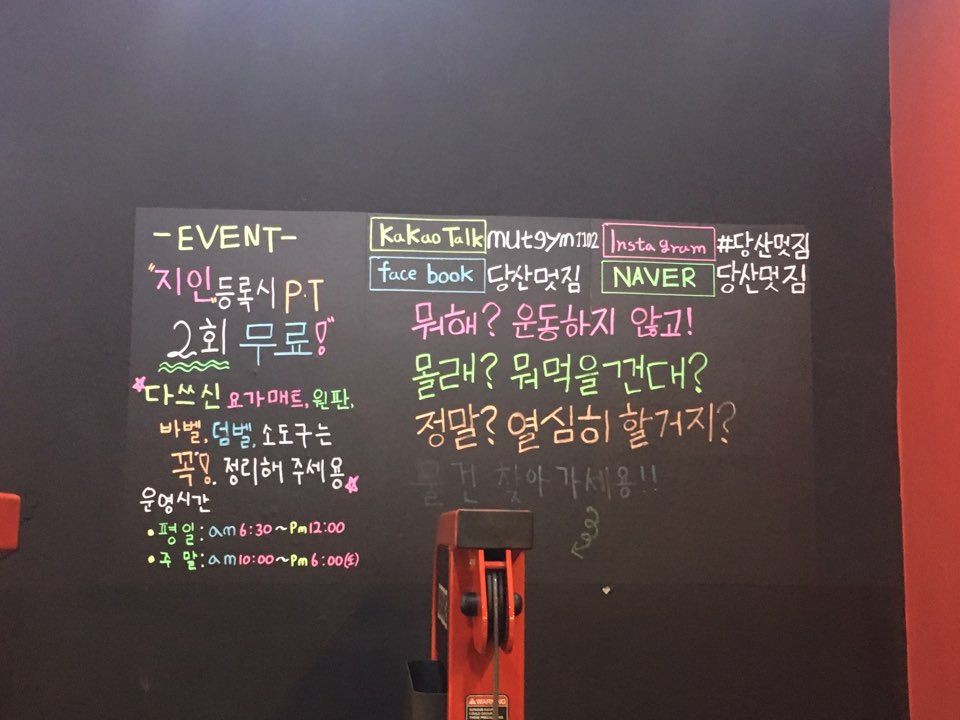 -EVENT-
"지인"등록시 P.T
2회 무료!"
다쓰신 요가매트, 원판,
바벨, 덤벨, 소도구는
꼭!. 정리해 주세용
운영시간
• 평일: am 6:30~Pm 12:00
• 주말: am 10:00~Pm 6:00(토)
KaKao Talk mutgym1102 Instagram #당산멋짐
face book 당산멋짐 NAVER 당산멋짐
뭐해? 운동하지 않고!
몰래? 뭐먹을껀대?
정말? 열심히 할거지?
물건 찾아가세용!!
WARNING